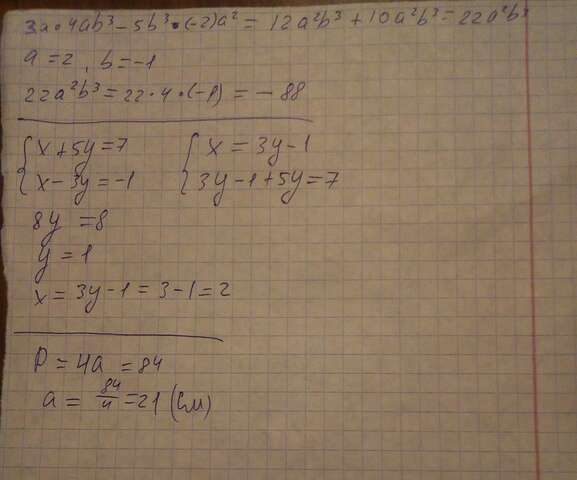 3a·4ab³-5b³·(-2)a²= 12a²b³+10a²b³=22a²b³
a=2, b=-1
22a²b³=22·4·(-1)=-88
{x+5y=7 {x=3y-1
x-3y=-1 3y-1+5y=7
8y=8
y=1
x=3y-1=3-1=2
P=4a=84
a=84/4=21(см)